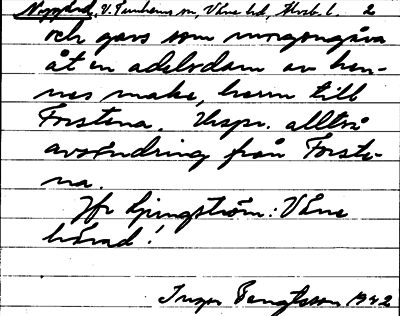 Nygård, V. Tunhems sn, Väne hd, Skarb. l. 2
och gavs som morgongåva
åt en adelsdam av hen-
nes make, herrn till
Forstena. Urspr. alltså
avsöndring från Forste-
na.
Jfr Ljungström: Väne
härad!
Inger Bengtsson 1942